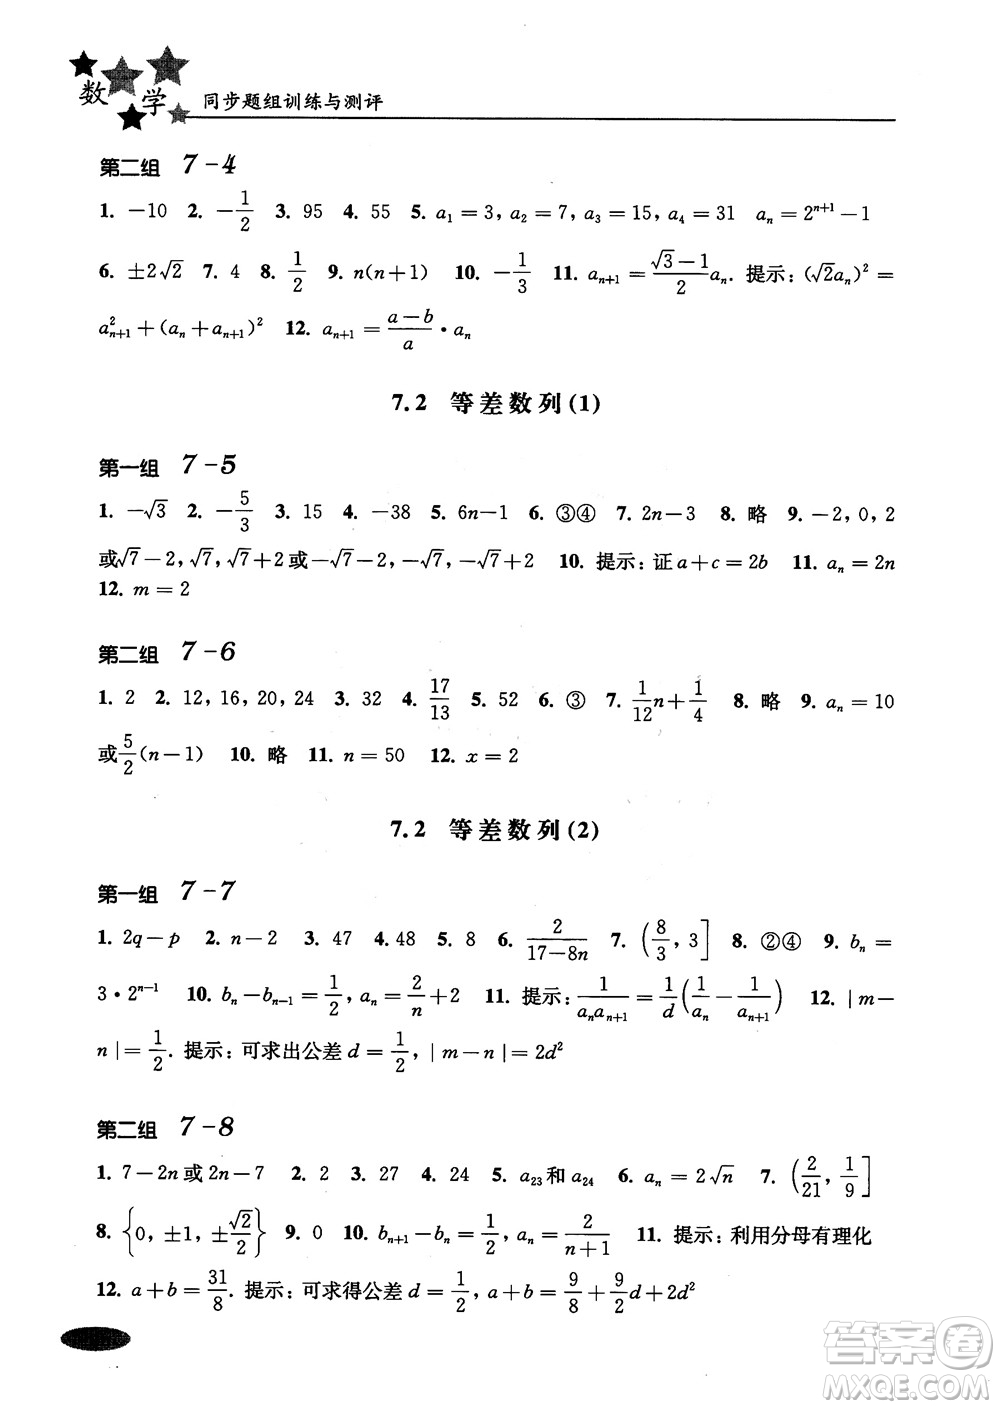 数学
同步题组训练与测评
第二组 7-4
1. －10 2. －1/2 3. 95 4. 55 5. a₁＝3，a₂＝7，a₃＝15，a₄＝31 aₙ＝2ⁿ⁺¹－1
6. ±2√2 7. 4 8. 1/2 9. n(n＋1) 10. －1/3 11. aₙ₊₁＝(√3－1)/2 aₙ. 提示：(√2aₙ)²＝
a²ₙ₊₁＋(aₙ＋aₙ₊₁)² 12. aₙ₊₁＝(a－b)/a・aₙ
7.2 等差数列(1)
第一组 7-5
1. －√3 2. －5/3 3. 15 4. －38 5. 6n－1 6. ③④ 7. 2n－3 8. 略 9. －2，0，2
或√7－2，√7，√7＋2或－√7－2，－√7，－√7＋2 10. 提示：证a＋c＝2b 11. aₙ＝2n
12. m＝2
第二组 7-6
1. 2 2. 12，16，20，24 3. 32 4. 17/13 5. 52 6. ③ 7. 1/12 n＋1/4 8. 略 9. aₙ＝10
或5/2(n－1) 10. 略 11. n＝50 12. x＝2
7.2 等差数列(2)
第一组 7-7
1. 2q－p 2. n－2 3. 47 4. 48 5. 8 6. 2/(17－8n) 7. (8/3，3] 8. ②④ 9. bₙ＝
3・2ⁿ⁻¹ 10. bₙ－bₙ₋₁＝1/2，aₙ＝2/n＋2 11. 提示：1/(aₙaₙ₊₁)＝1/d(1/aₙ－1/aₙ₊₁) 12. |m－
n|＝1/2. 提示：可求出公差d＝1/2，|m－n|＝2d²
第二组 7-8
1. 7－2n或2n－7 2. 2 3. 27 4. 24 5. a₂₃和a₂₄ 6. aₙ＝2√n 7. (2/21，1/9]
8. {0，±1，±√2/2} 9. 0 10. bₙ₊₁－bₙ＝1/2，aₙ＝2/(n＋1) 11. 提示：利用分母有理化
12. a＋b＝31/8. 提示：可求得公差d＝1/2，a＋b＝9/8＋9/2 d＋2d²
答案卷
MXQE.COM